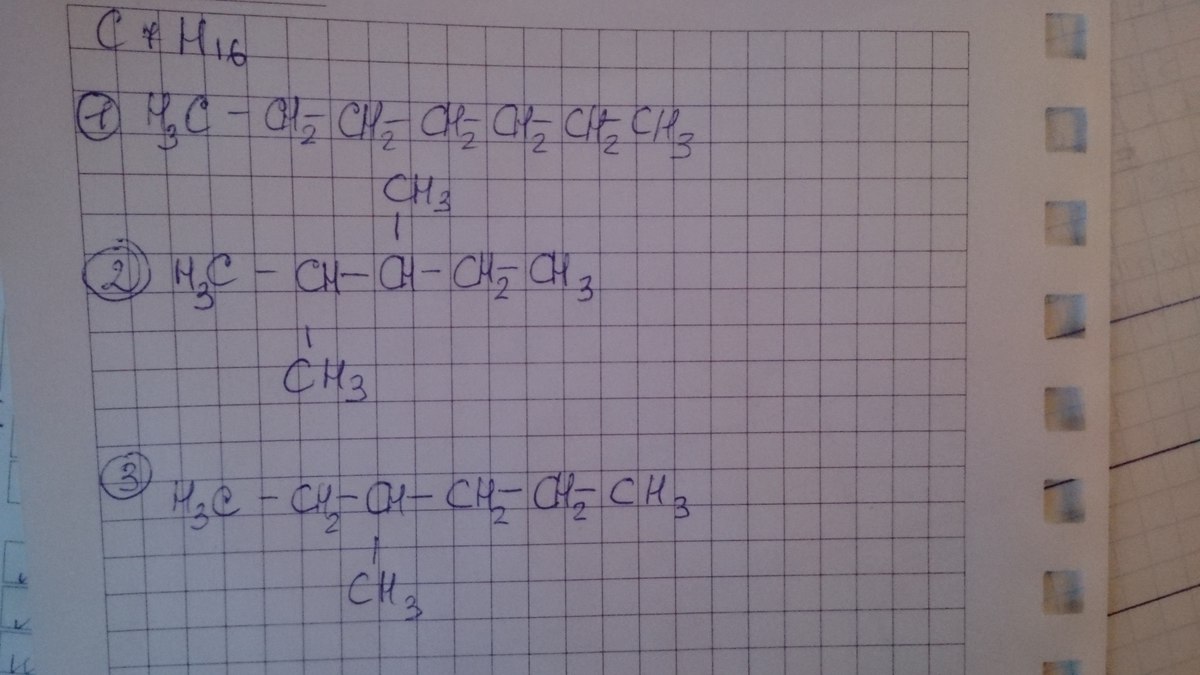 C7H16
1 H3C - CH2- CH2- CH2- CH2- CH2- CH3
CH3
|
2 H3C - CH - CH - CH2- CH3
|
CH3
3 H3C - CH2- CH - CH2- CH2- CH3
|
CH3